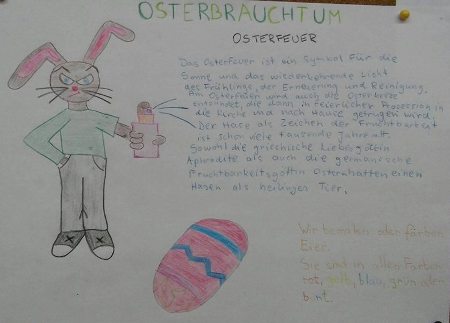 OSTERBRAUCHTUM
OSTERFEUER
Das Osterfeuer ist ein Symbol für die
Sonne und das wiederkehrende Licht
des Frühlings, der Erneuerung und Reinigung.
Am Osterfeuer wird auch die Osterkerze
entzündet, die dann in feierlicher Prozession in
die Kirche und nach Hause getragen wird.
Der Hase als Zeichen der Fruchtbarkeit
ist schon viele tausende Jahre alt.
Sowohl die griechische Liebesgöttin
Aphrodite als auch die germanische
Fruchtbarkeitsgöttin Ostern hatten einen
Hasen als heiliges Tier.
Wir bemalen oder färben
Eier.
Sie sind in allen Farben
rot, gelb, blau, grün oder
bunt.